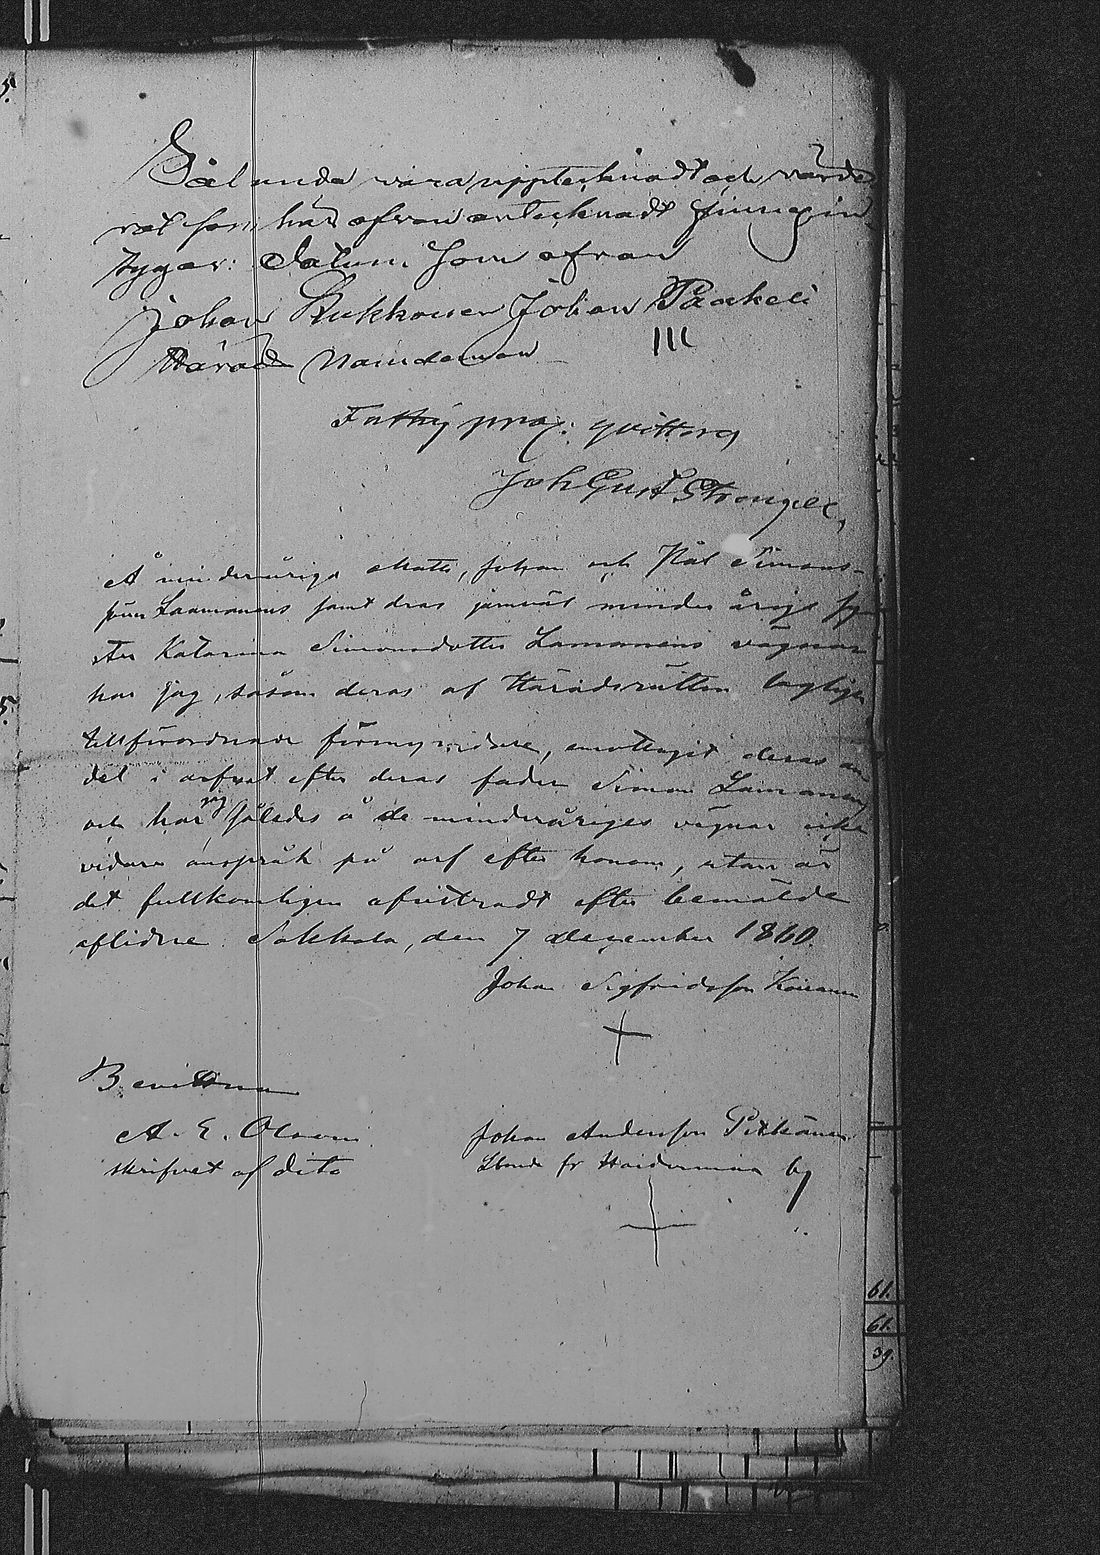 Sålunda vara upptecknadt och värde
rat som här ofvan antecknadt finnes in
tygar: Datum som ofvan
Johan Kukkonen Johan Paakeli
III
Härads Nämdeman
Fattig proc: qvitteras
Joh Gust Strengell,
Å minderåriga Matts, Johan och Pål Simons-
söner Laamanens samt dras jemväl minder årige sys
ter Katarina Simonsdotter Lamanens vägnar
har jag, såsom deras af Häradsrätten lagligen
tillförordnade förmyndare, emottagit deras an
del i arfvet efter deras fader Simon Lamanen
och har jag således å de minderåriges vägnar icke
vidare anspråk på arf efter honom, utan är
det fullkomligen afvittradt efter bemälde
aflidne. Sakkola, den 7 December 1860.
Johan Sigfridsson Koiranen
Bevittna
A. E. Olsoni
skrifvet af dito
Johan Andersson Pitkänen
Bonde fr Haidermaa by
61.
61.
39.